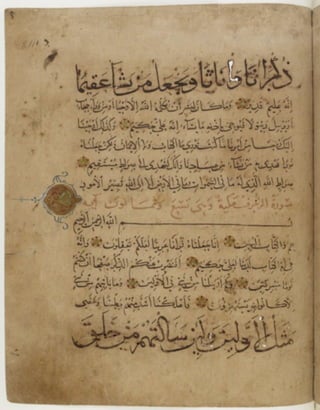 ذكرانا وإناثا ويجعل من يشاء عقيما
إنه عليم قدير وما كان لبشر أن يكلمه الله إلا وحيا أو من وراء حجاب
أو يرسل رسولا فيوحي بإذنه ما يشاء إنه علي حكيم وكذلك أوحينا
إليك روحا من أمرنا ما كنت تدري ما الكتاب ولا الإيمان ولكن جعلناه
نورا نهدي به من نشاء من عبادنا وإنك لتهدي إلى صراط مستقيم
صراط الله الذي له ما في السموات وما في الأرض ألا إلى الله تصير الأمور
سورة الزخرف مكية وهي تسع وثمانون آية
بسم الله الرحمن الرحيم
حم والكتاب المبين إنا جعلناه قرآنا عربيا لعلكم تعقلون وإنه
في أم الكتاب لدينا لعلي حكيم أفنضرب عنكم الذكر صفحا أن كنتم
قوما مسرفين وكم أرسلنا من نبي في الأولين وما يأتيهم من نبي
إلا كانوا به يستهزءون فأهلكنا أشد منهم بطشا ومضى
مثل الأولين ولئن سألتهم من خلق